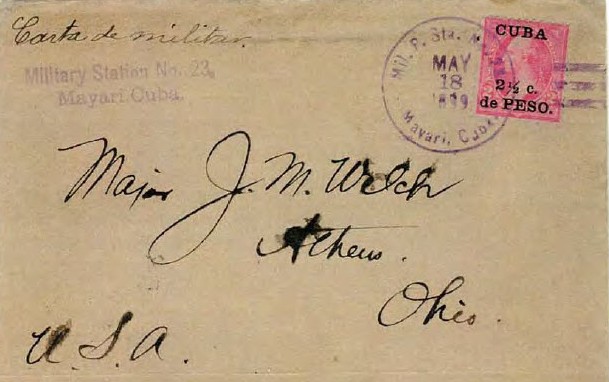 Carta de militar.
Military Station No. 23,
Mayari, Cuba.
Mil. P. Sta. N
MAY
18
1899
Mayari, Cuba
CUBA
2½ c.
de PESO.
Major J. M. Welch
Athens.
Ohio.
U. S. A.